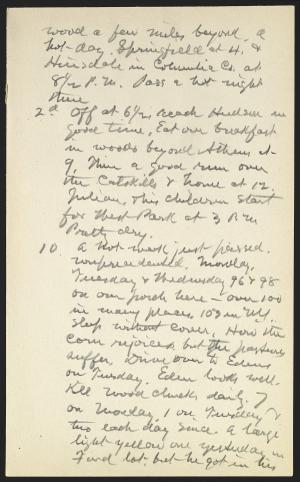 wood a few miles beyond, a
hot-day. Springfield at 4. &
Hinsdale in Columbia Co. at
8 1/2 P.M. Pass a hot night
there.
2d Off at 6 1/2, reach Hudson in
good time, Eat our breakfast
in woods beyond Athens at
9. Then a good run over
the Catskills & home at 12.
Julian & his children start
for West Park at 3 P.M.
Pretty dry.
10. A hot week just passed.
unprecedented, Monday,
Tuesday & Wednesday 96 & 98
on our porch here - over 100
in many places, 103 in N.Y.
Sleep without cover. How the
corn rejoices, but the pastures
suffer. Drive over to Edens
on Tuesday. Eden looks well.
Kill wood chucks daily, 7
on Monday, 1 on Tuesday &
two each day since. A large
light yellow one yesterday in
lot, but he got in his